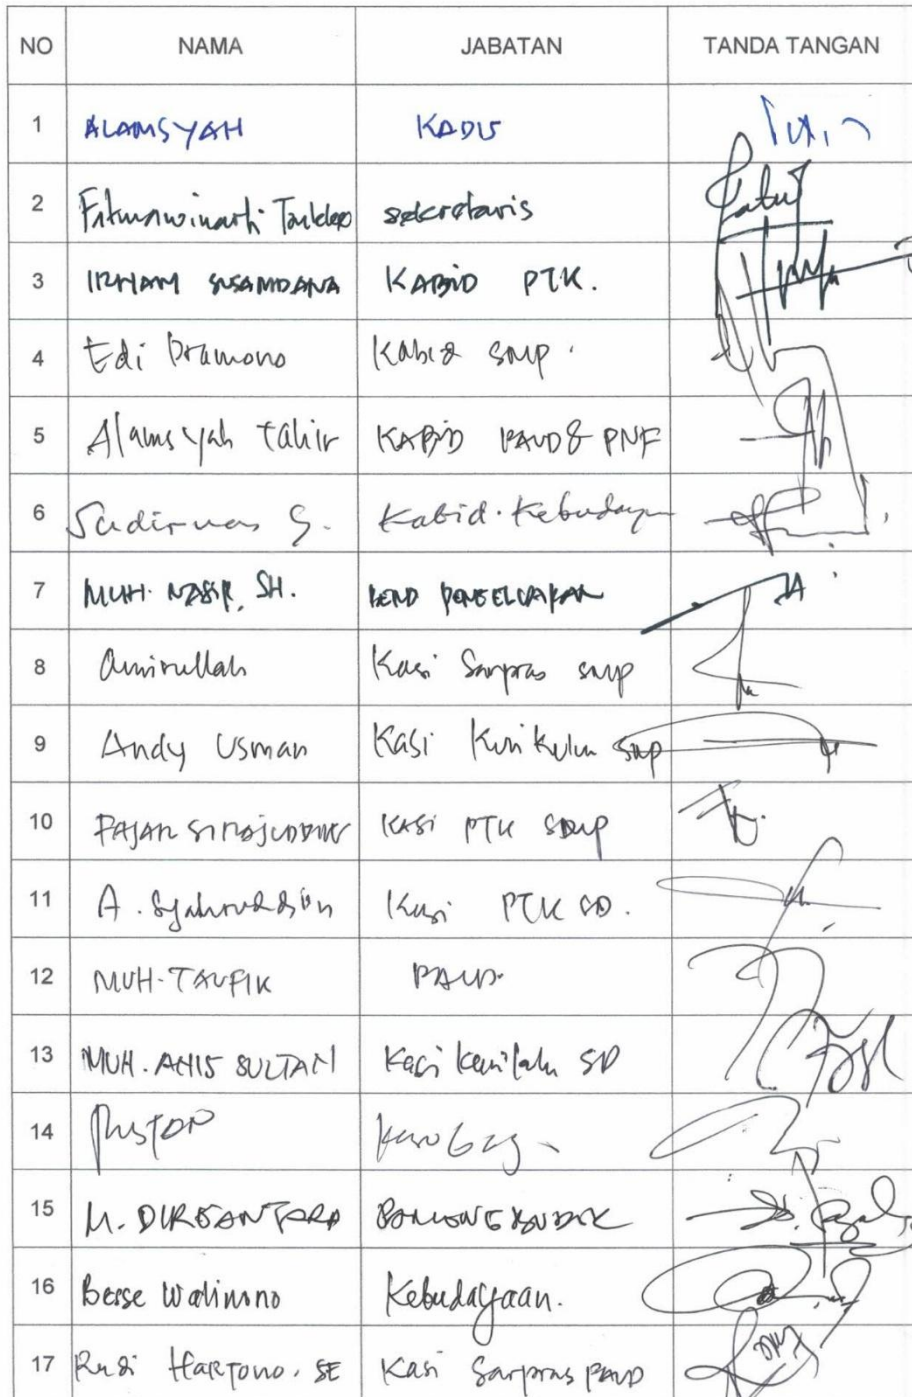 NO NAMA JABATAN TANDA TANGAN
1 ALAMSYAH KADIS
2 Fitmawinarti sekretaris
3 IRHAM SUSAMDANA KABID PTK.
4 Edi Pramono Kabid SMP.
5 Alamsyah Tahir KABID PAUD & PNF
6 Sudirman S. Kabid. Kebudayaan
7 MUH. NASIR, SH. BEND PENGELUARAN
8 Amirullah Kasi Sarpras SMP
9 Andy Usman Kasi Kurikulum SMP
10 FAJAR SIRAJUDDIN KASI PTK SMP
11 A. Syahruddin Kasi PTK SD.
12 MUH. TAUFIK PAUD.
13 MUH. ANIS SULTAN Kasi SD
14
15 M. DIRGANTARA PAMONG BUDAYA
16 Besse Walinono Kebudayaan.
17 Rudi Hartono. SE Kasi Sarpras PAUD